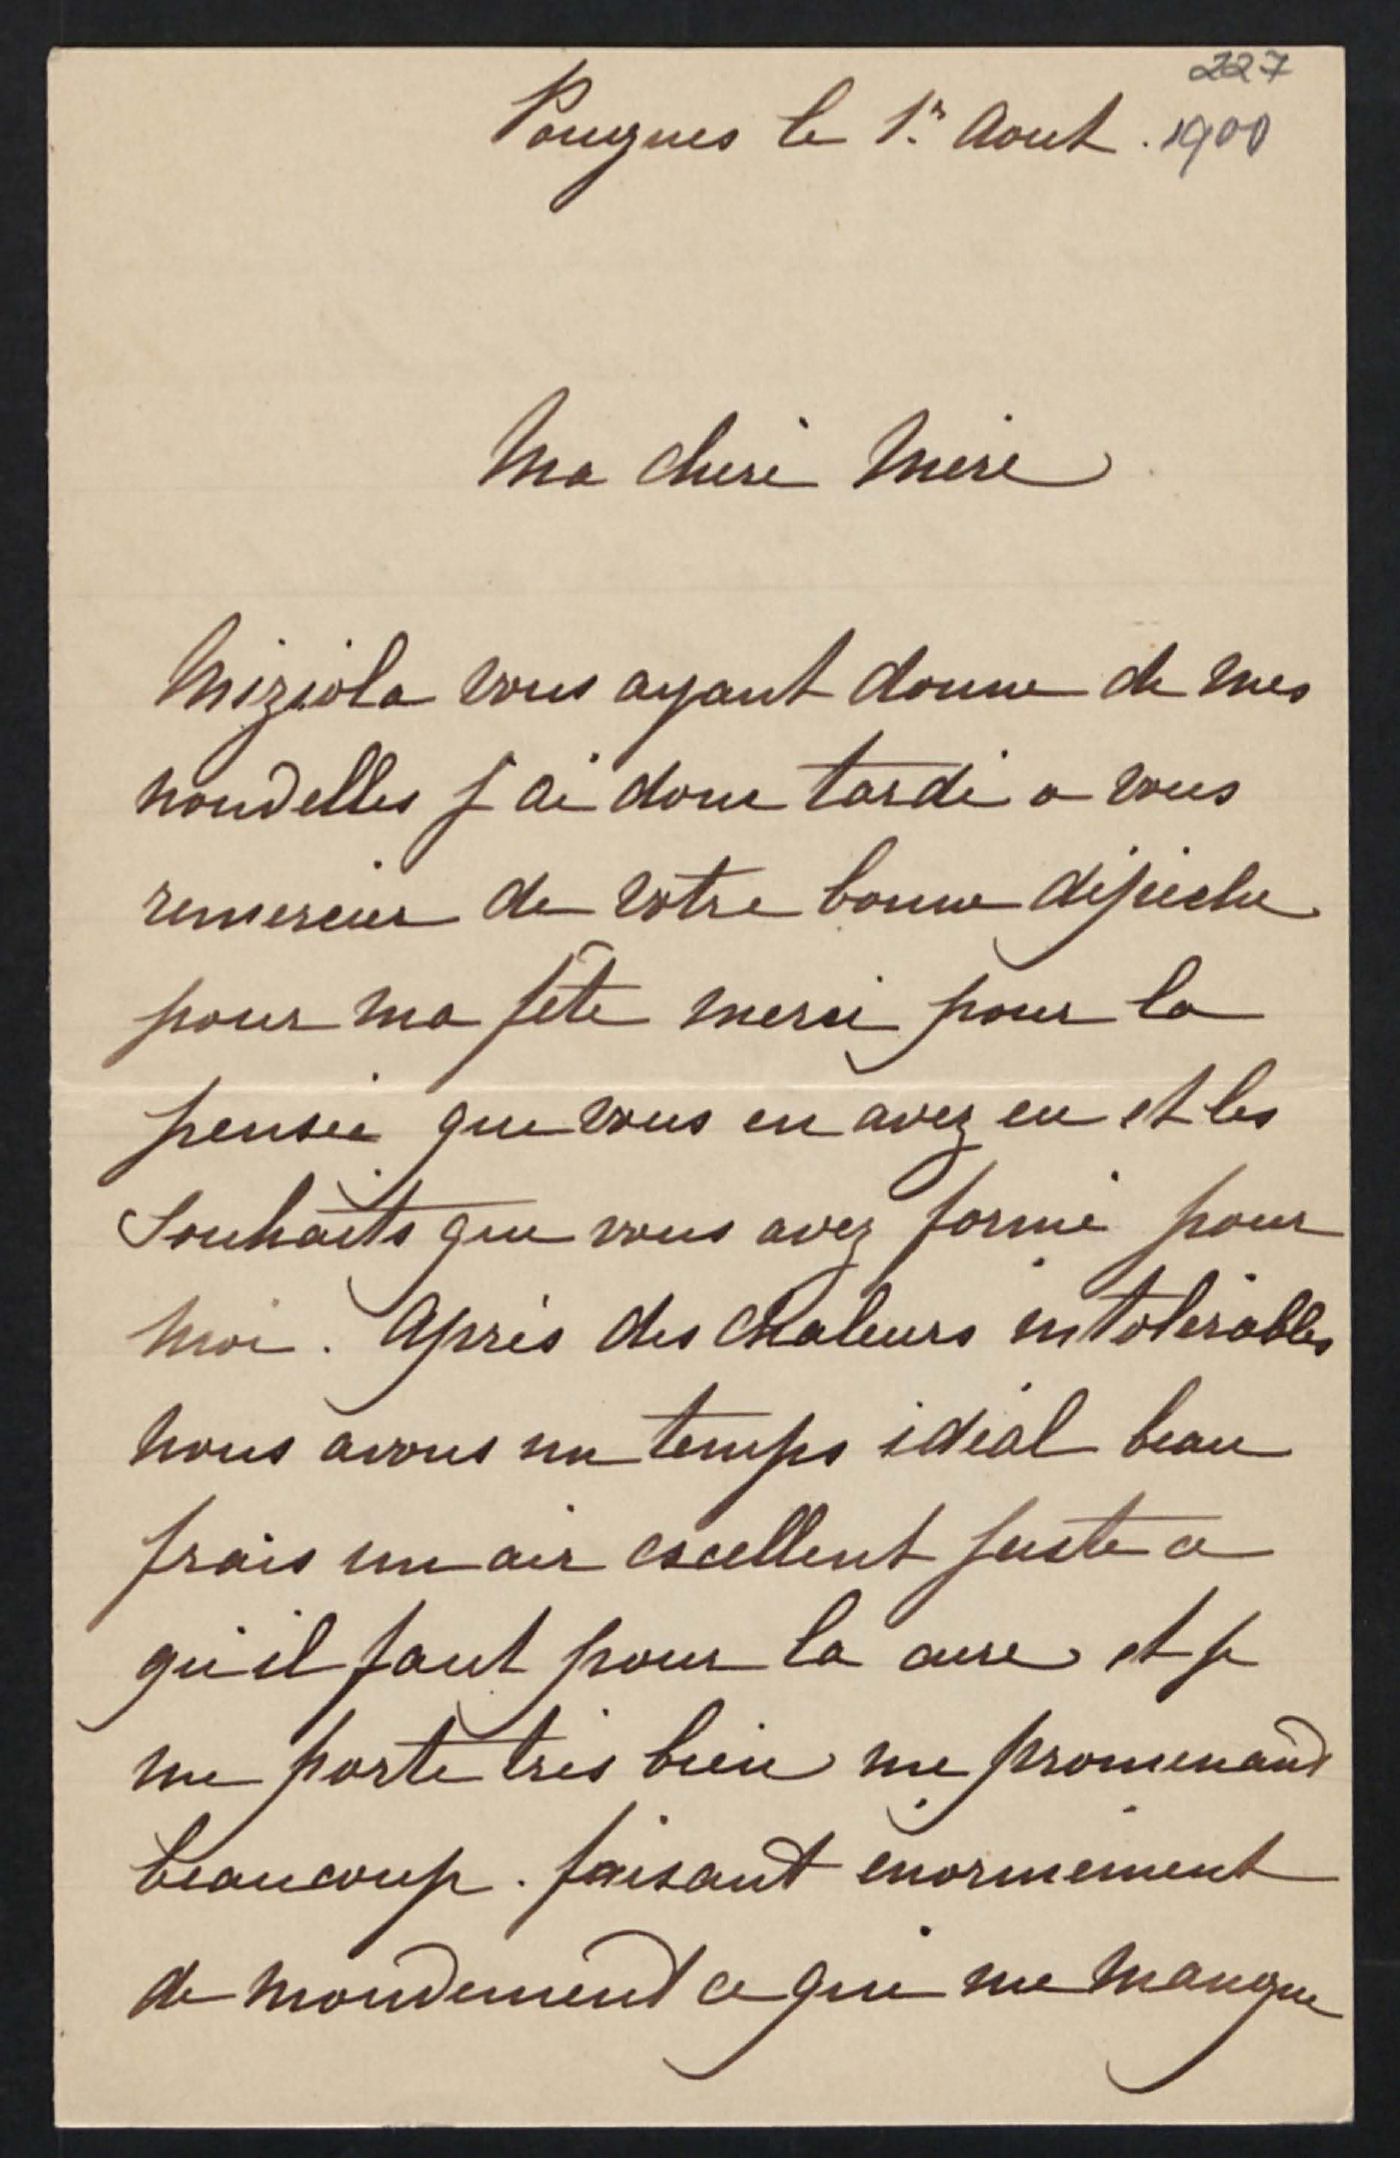 227
Pougues le 1r Aout. 1900
Ma cheré Meré
Miziola vous ayant donne de mes
nouvelles j'ai donc tardé a vous
remercier de votre bonne dépéche
pour ma fête merci pour la
pensée que vous en avez eu et les
Souhaits que vous avez formé pour
moi. Après des chaleurs intolérables
nous avons un temps idéal beau
frais un air excellent juste ce
qu'il faut pour la cure et je
me porte très bien me promenant
beaucoup. faisant enormément
de mouvement ce qui me manque